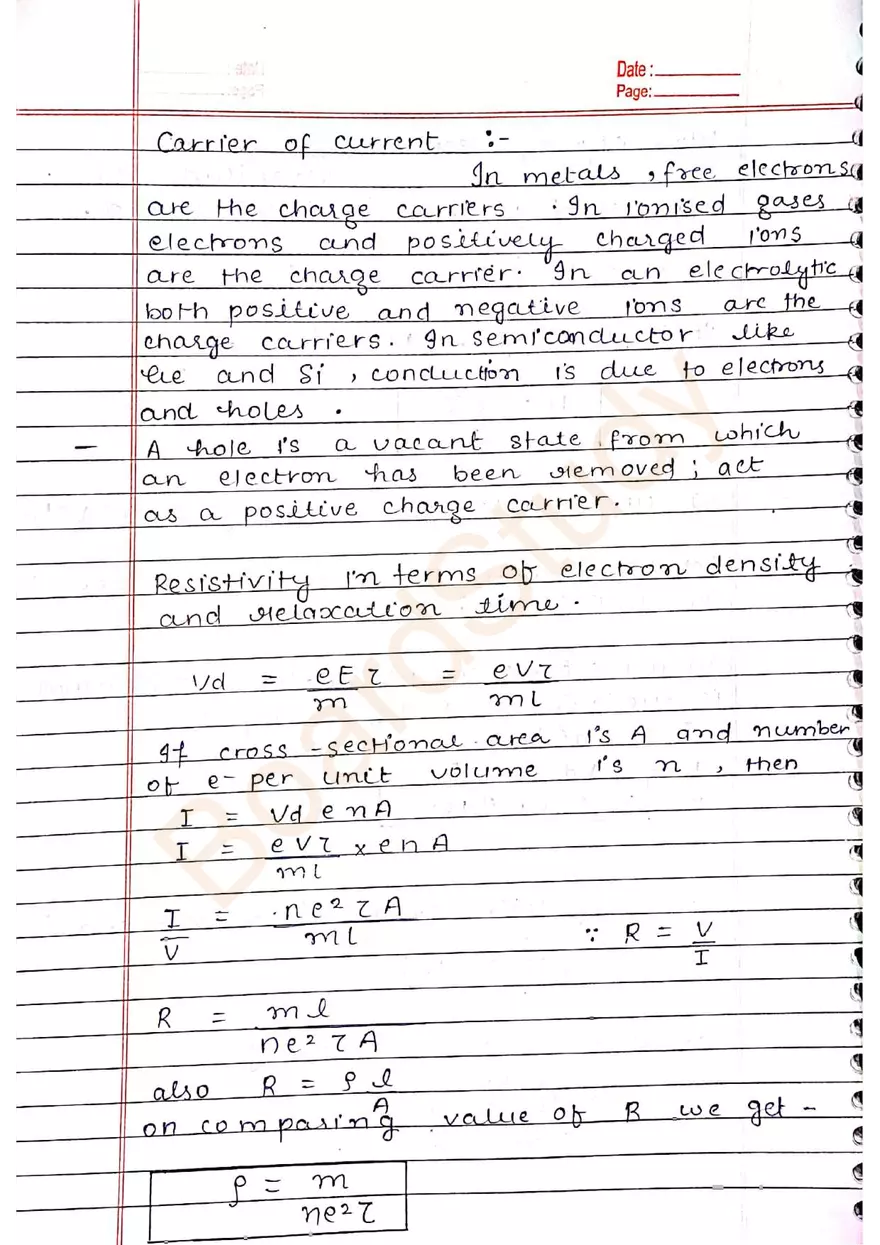 Date :
Page:
Carrier of current :-
In metals , free electrons
are the charge carriers . In ionised gases
electrons and positively charged ions
are the charge carrier. In an electrolytic
both positive and negative ions are the
charge carriers. In semiconductor like
Ge and Si , conduction is due to electrons
and holes .
— A hole is a vacant state from which
an electron has been removed ; act
as a positive charge carrier.
Resistivity in terms of electron density
and relaxcation time .
Vd = eEτ/m = eVτ/ml
If cross -sectional area is A and number
of e- per unit volume is n , then
I = Vd e n A
I = eVτ/ml x e n A
I/V = ne²τA/ml ∵ R = V/I
R = ml/ne²τA
also R = ρ l/A
on comparing value of R we get -
ρ = m/ne²τ
BoardStudy